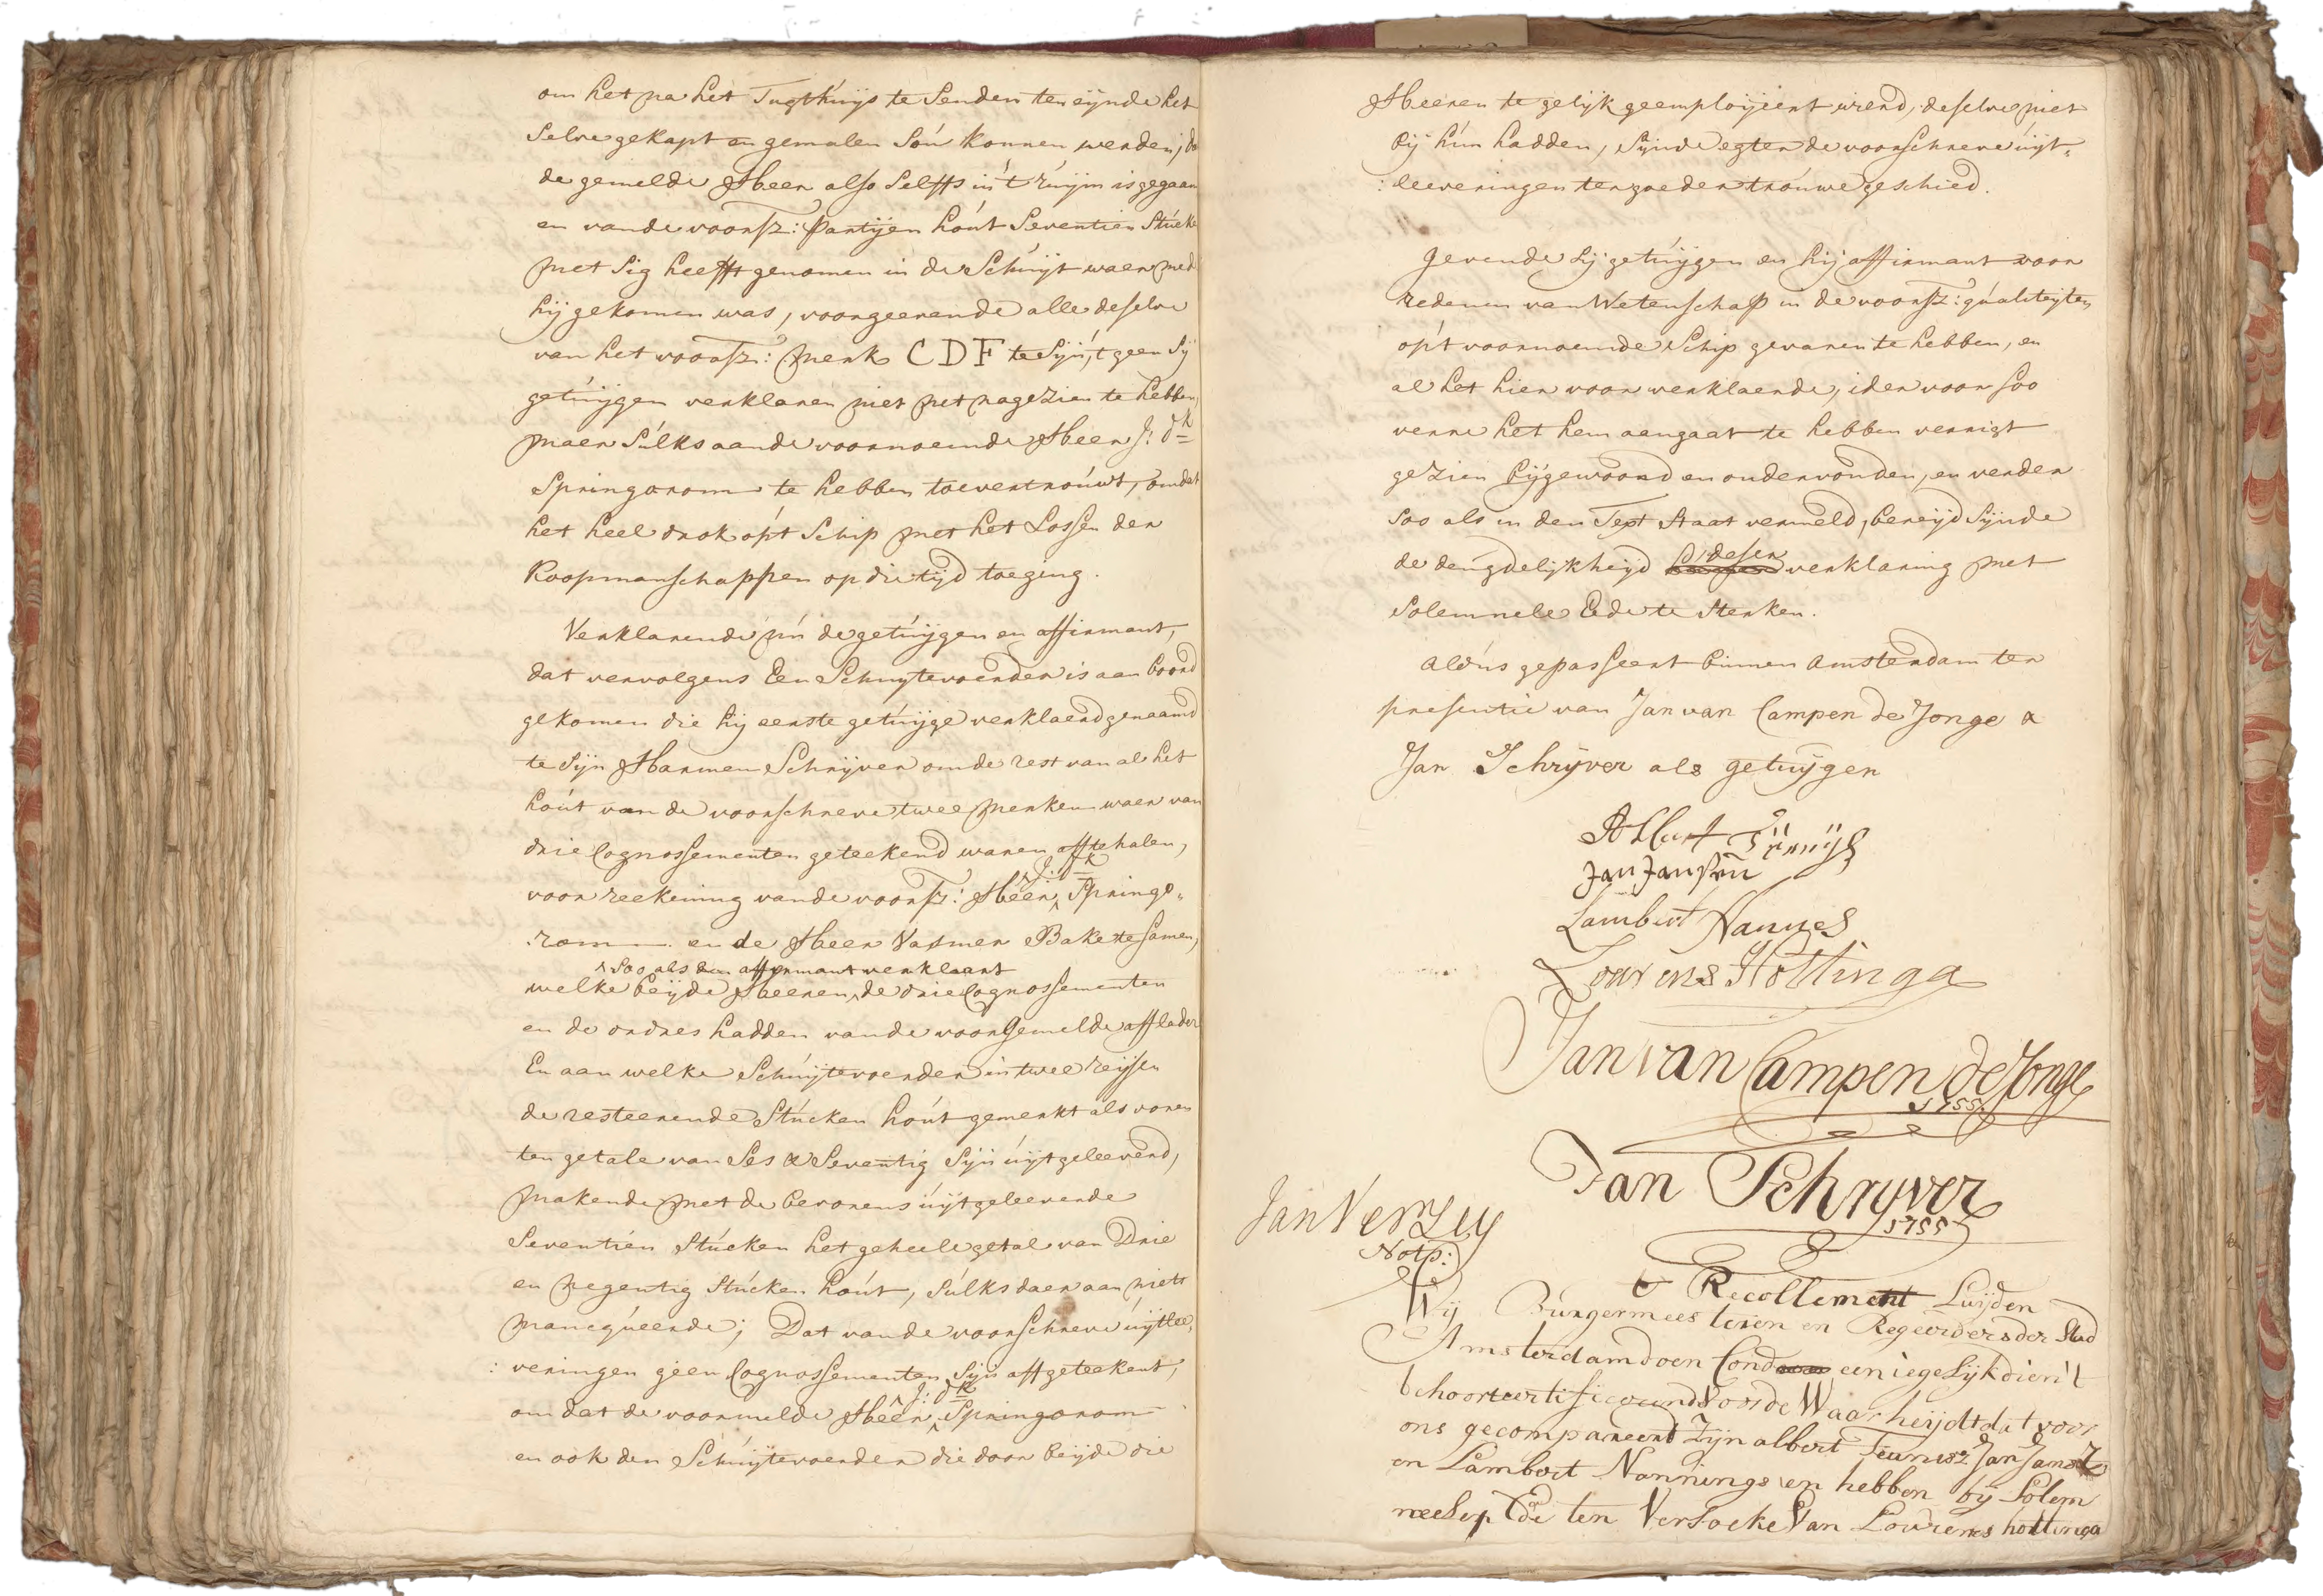 om het na het Tugthuijs te Senden ten eijnde het
Selve gekapt en gemalen Sou konnen werden; do
de gemelde Heer also Selffs in 't ruijm is gegaan
en vande voorsz: Partijen hout Seventien Stucke
met Sig heefft genomen in de Schuijt waer med
hij gekomen was, voorgeevende alle deselve
van het voorsz: merk CDF te Sijn, 't geen Sij
getuijgen verklaren niet net nagezien te hebben,
maer Sulks aande voornoemde Heer J: dk
Springorom te hebben toevertrouwt, omdat
het heel drok op't Schip met het Lossen der
Koopmanschappen op die tijd toeging.
Verklarende nu de getuijgen en affirmant,
dat vervolgens Een Schuijtevoerder is aan boord
gekomen die hij eerste getuijge verklaerd genaamd
te Sijn Harmen Schrijver om de rest van al het
hout van de voorschreve twee merken waer van
drie Cognossementen geteekend waren afftehalen,
J: dk
voor reekening vande voorsz: Heer, Springo„
:rom en de Heer Vasmer Bake te samen,
Soo als den affirmant verklaart
welke beijde Heeren, de drie Cognossementen
en de ordres hadden vande voorgemelde afflader
En aan welke Schuijtevoerder in twee reijsen
de resteerende Stucken hout gemerkt als voren
ten getale van Ses & Seventig Sijn uijtgeleeverd,
makende met de bevorens uijtgeleeverde
Seventien Stucken het geheele getal van Drie
en negentig Stucken hout, Sulks daer aan niets
mancqueerde; Dat vande voorschreve uijtlee„
:veringen geen Cognossementen Sijn affgeteekent,
J: dk
om dat de voormelde Heer, Springorom
en ook den Schuijtevoerder die door beijde die
Heeren te gelijk geemploijeert wierd, deselve niet
bij hun hadden, Sijnde egter de voorschreve uijt„
:leeveringen ter goeder trouwe geschied.
Gevende Sij getuijgen en hij affirmant voor
redenen van Wetenschap in de voorsz: qualiteijten
op't voornoemde Schip gevaren te hebben, en
al het hier voor verklaerde, ider voor soo
verre het hem aengaat te hebben verrigt
gezien bijgewoond en ondervonden, en verder
Soo als in den Text Staat vermeld, bereijd Sijnde
deser
de deugdelijkheijd verklaring met
Solemnele Ede te Sterken.
Aldus gepasseert binnen Amsterdam ter
presentie van Jan van Campen de Jonge &
Jan Schrijver als getuijgen
Albert Tünnijs
Jan Jansen
Lambert Nannes
Lourens Hottinga
Jan van Campen de Jonge
1755
Jan Schryver
1755
Jan Verleij
Nots:
Recollement Luijden
Wij Burgermeesteren en Regeerders der Stad
Amsterdam doen Cond een iegelijk dien 't
behoort certificeerende voor de Waarheijdt dat voor
ons gecompareert Zijn albert Teunisz Jan Jansz
en Lambert Nannings en hebben bij Solem
neelen Ede ten Versoeke Van Lourens hottinga